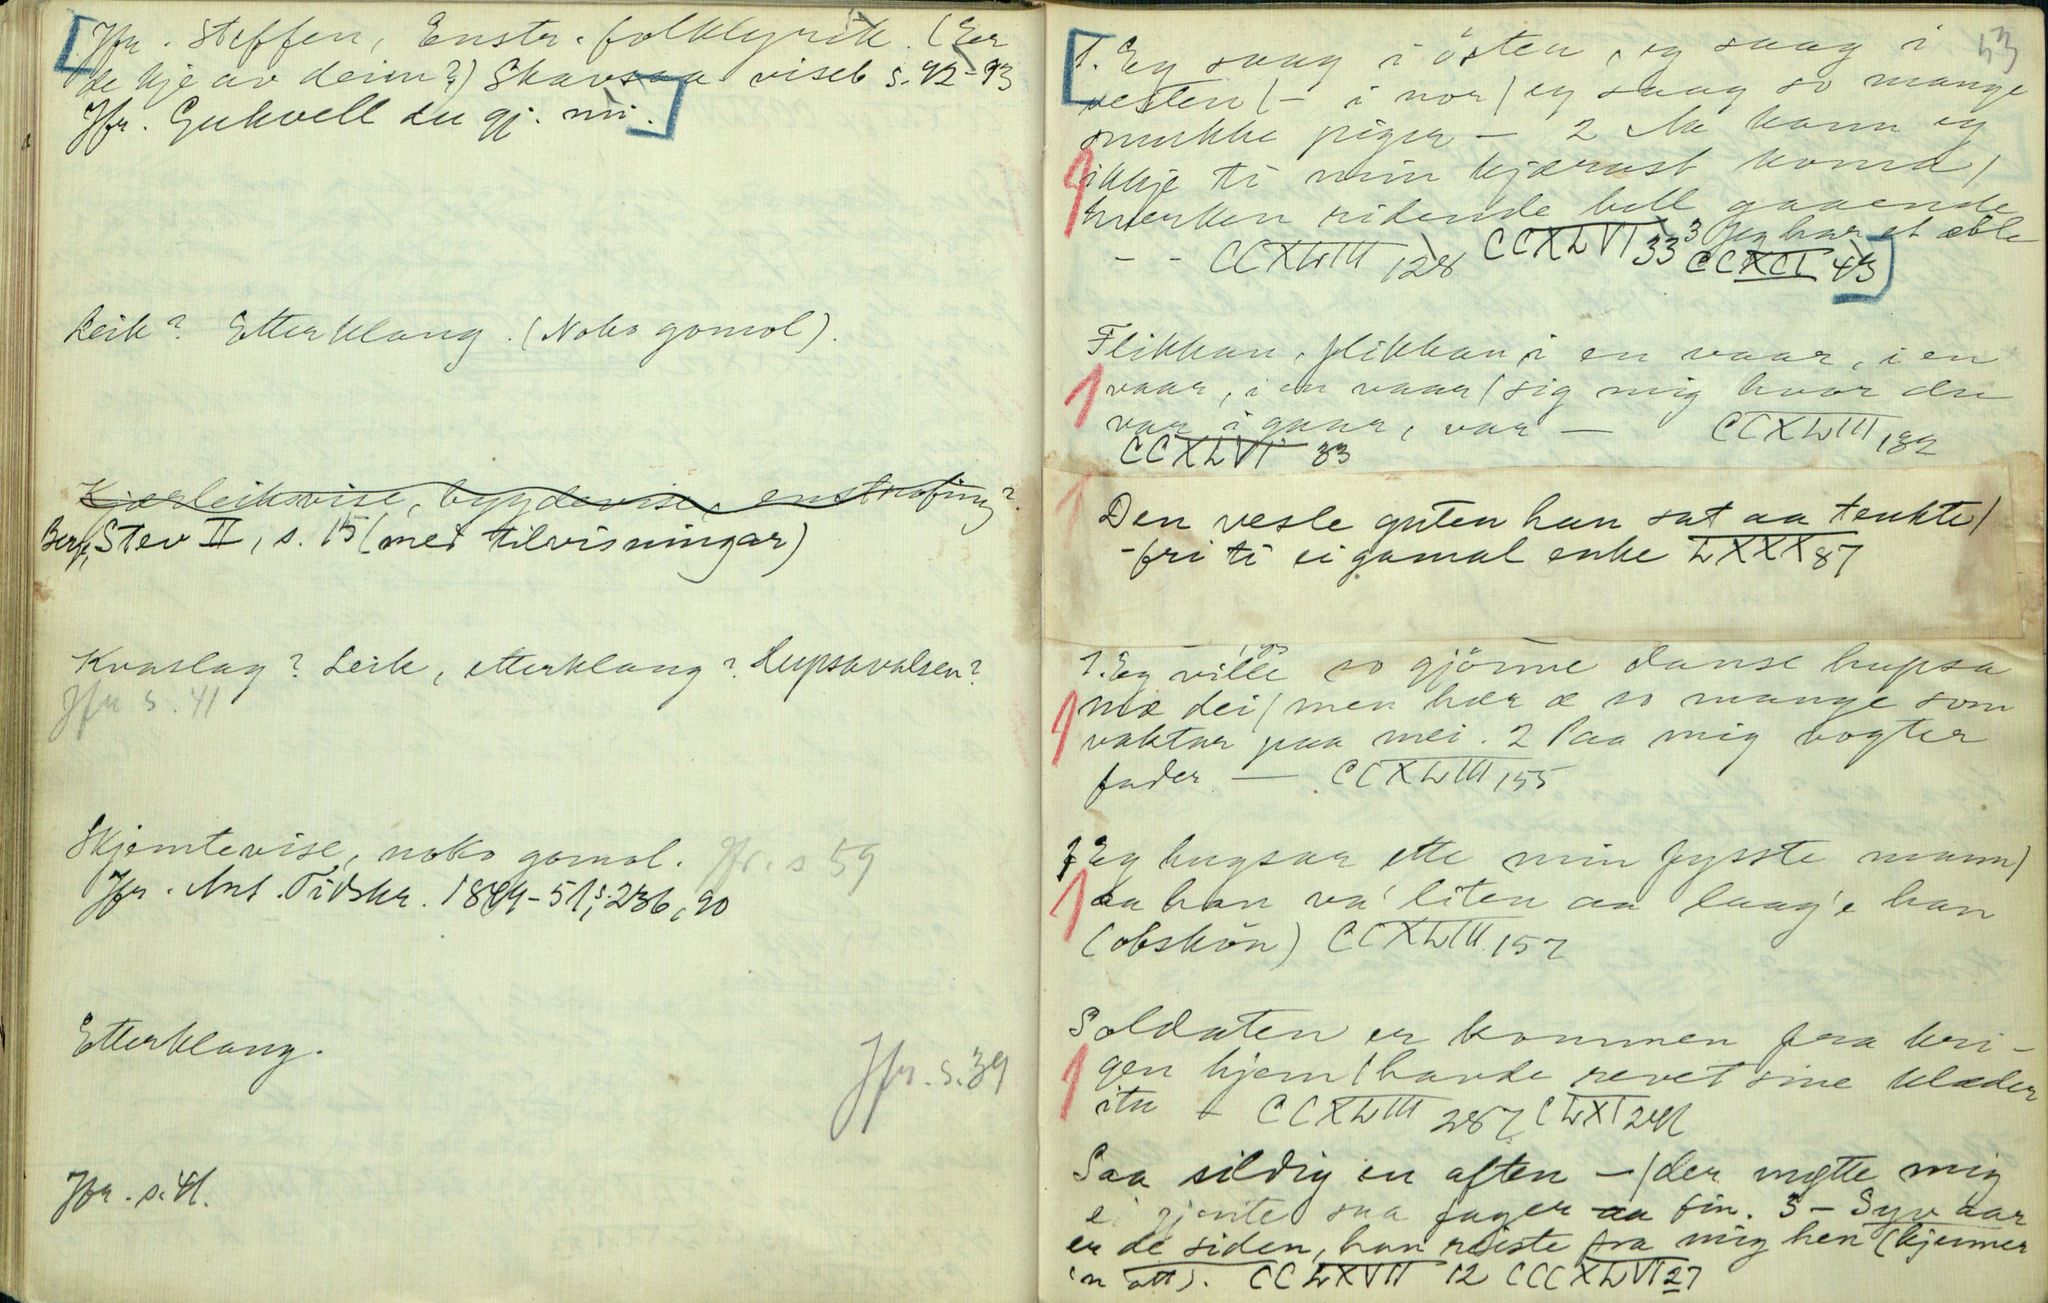 Jfr. Steffen, Enstr. folklyrik. (Er
de kje av deim?) Skavsaa viseb s. 92-93
Jfr. Gukvell du gj. mi.
Leik? Etterklang. (Noko gomol).
Kjærleiksvise, bygdevise, enstrofing?
Berge, Stev II, s. 15 (med tilvisningar)
Kvaslag? Leik, etterklang? Hupsavalsen?
Jfr s. 41
Skjemtevise, noko gomol. Jfr. s 59
Jfr. Ant. Tidskr. 1849-51, s. 236, 90
Etterklang.
Jfr. s. 39
Jfr. s. 41.
53
1. Eg saag i östen, eg saag i
vesten (- i nor) eg saag so mange
smukke piger - 2 Na kann eg
ikkje ti min kjærast koma,
hverken ridende hell gaaende
3 Jeg har et æble
- - CCXLIII 128 CCXLVI 33 CCXCI 43
Flikkan, flikkan i en vaar, i en
vaar, i en vaar / sig mig hvor du
var i gaar, var - CCXLIII 182
CCXLVI 33
Den vesle guten han sat aa tenkte /
-fri ti ei gamal enke LXXX 87
1. Eg ville so gjönne danse hupsa
mæ dei / men hær æ so mange som
vaktar paa mei. 2 Paa mig vogter
fader - CCXLIII 155
1 Eg hugsar ette min fysste mann /
aa han va' liten aa laag'e han
(obskön) CCXLIII 157
Soldaten er kommen fra kri-
gen hjem / havde revet sine klæder
itu - CCXLIII 287, CLXI 241
Saa sildig en aften - / der møtte mig
ei gjente saa fager aa fin. 3 - Syv aar
er de siden, han reiste fra mig hen (kjenner
in att). CCLXVII 12 CCCXLVI 27